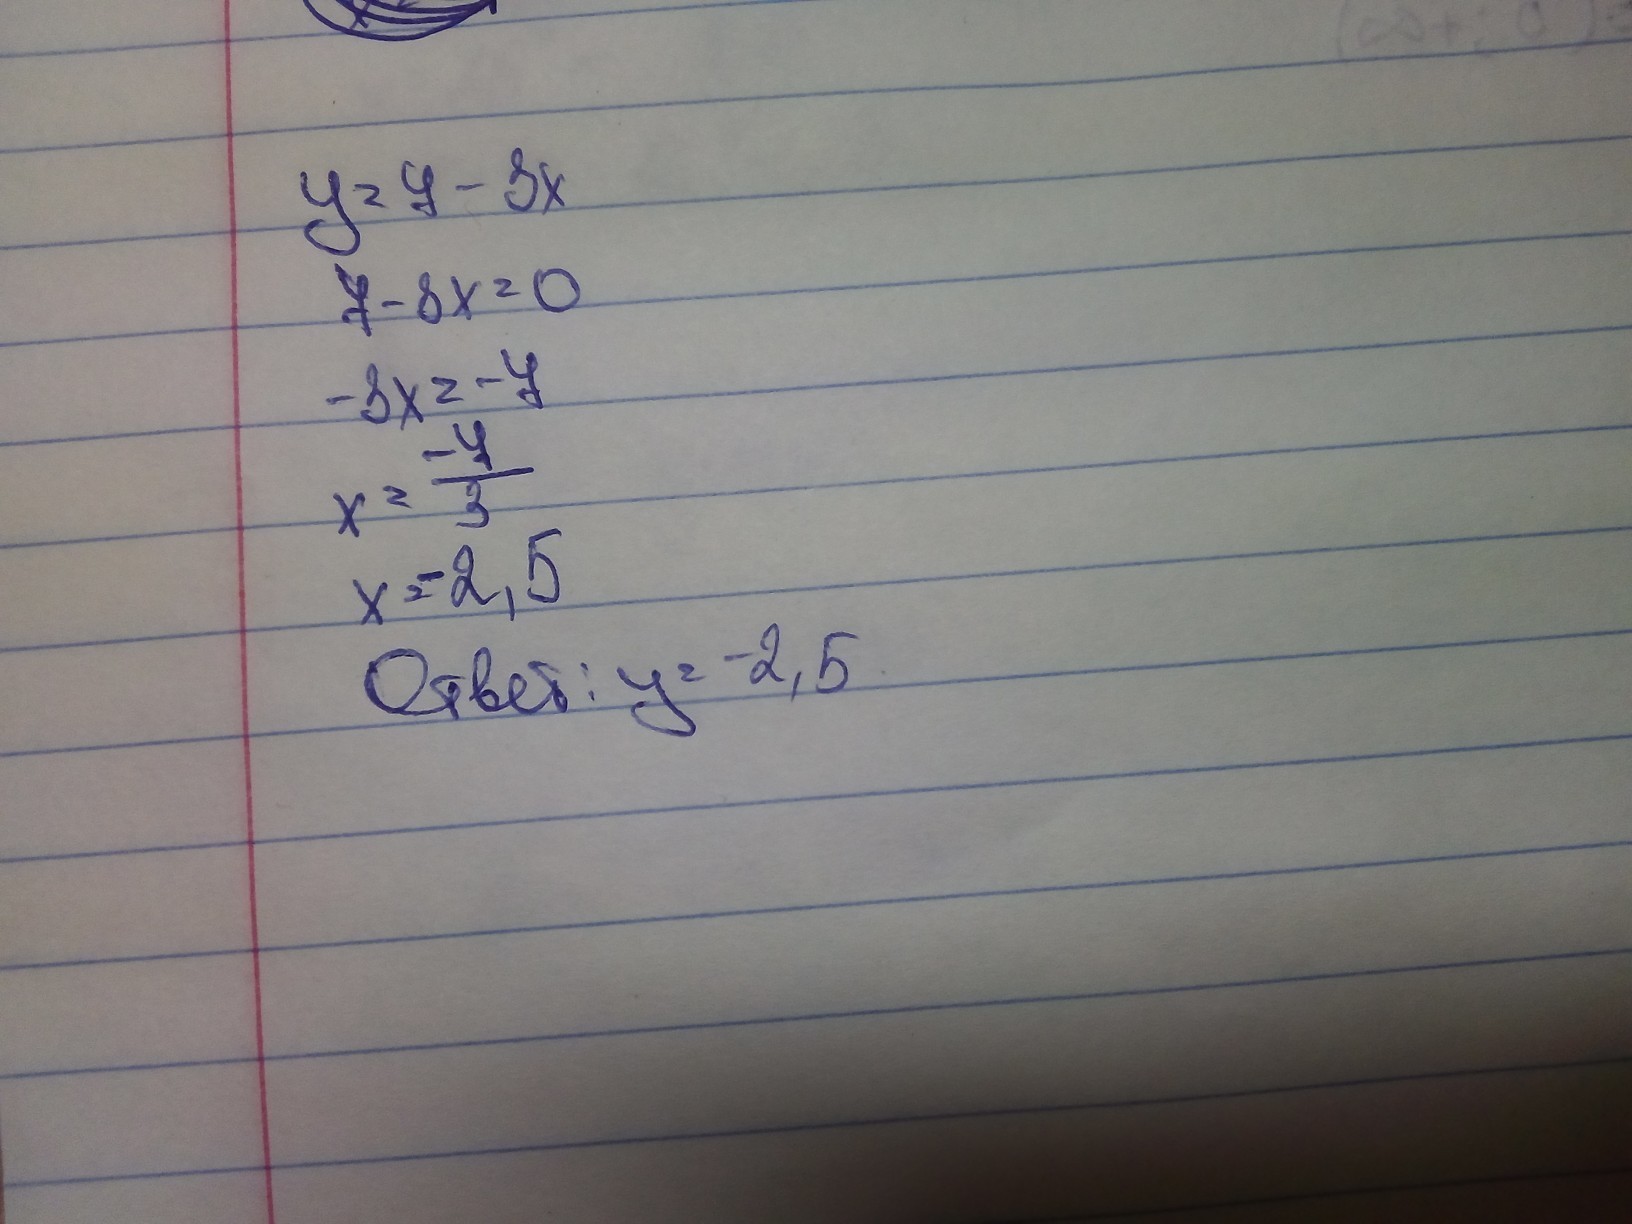 y = 7 - 3x
7 - 3x = 0
-3x = -7
x = -7/3
x = -2,5
Ответ: y = -2,5